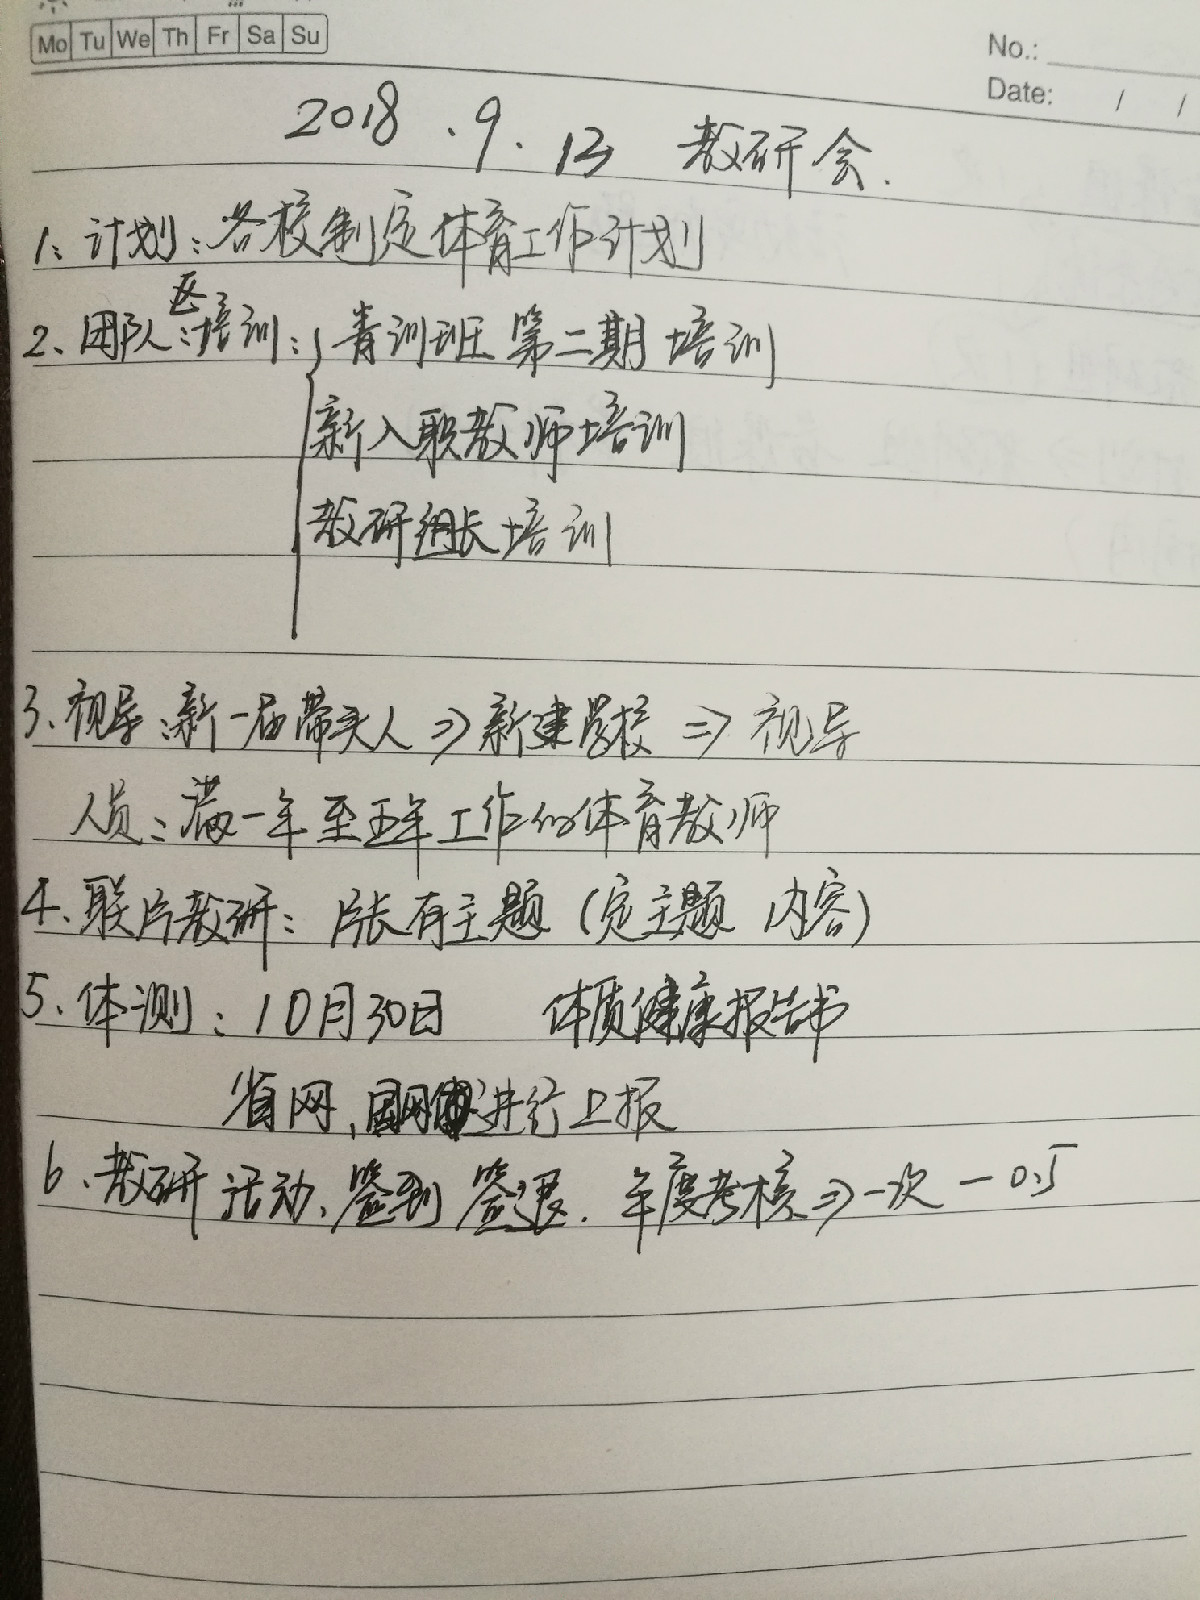 Mo Tu We Th Fr Sa Su
No.:
Date: / /
2018.9.13 教研会.
1、计划：各校制定体育工作计划
2、团队区培训：青训班第二期培训
新入职教师培训
教研组长培训
3、视导：新一届带头人⇒新建学校⇒视导
人员：满一年至五年工作的体育教师
4、联片教研：片长有主题（定主题 内容）
5、体测：10月30日 体质健康报告书
省网、国网 进行上报
6、教研活动、签到 签退. 年度考核⇒一次-0.5